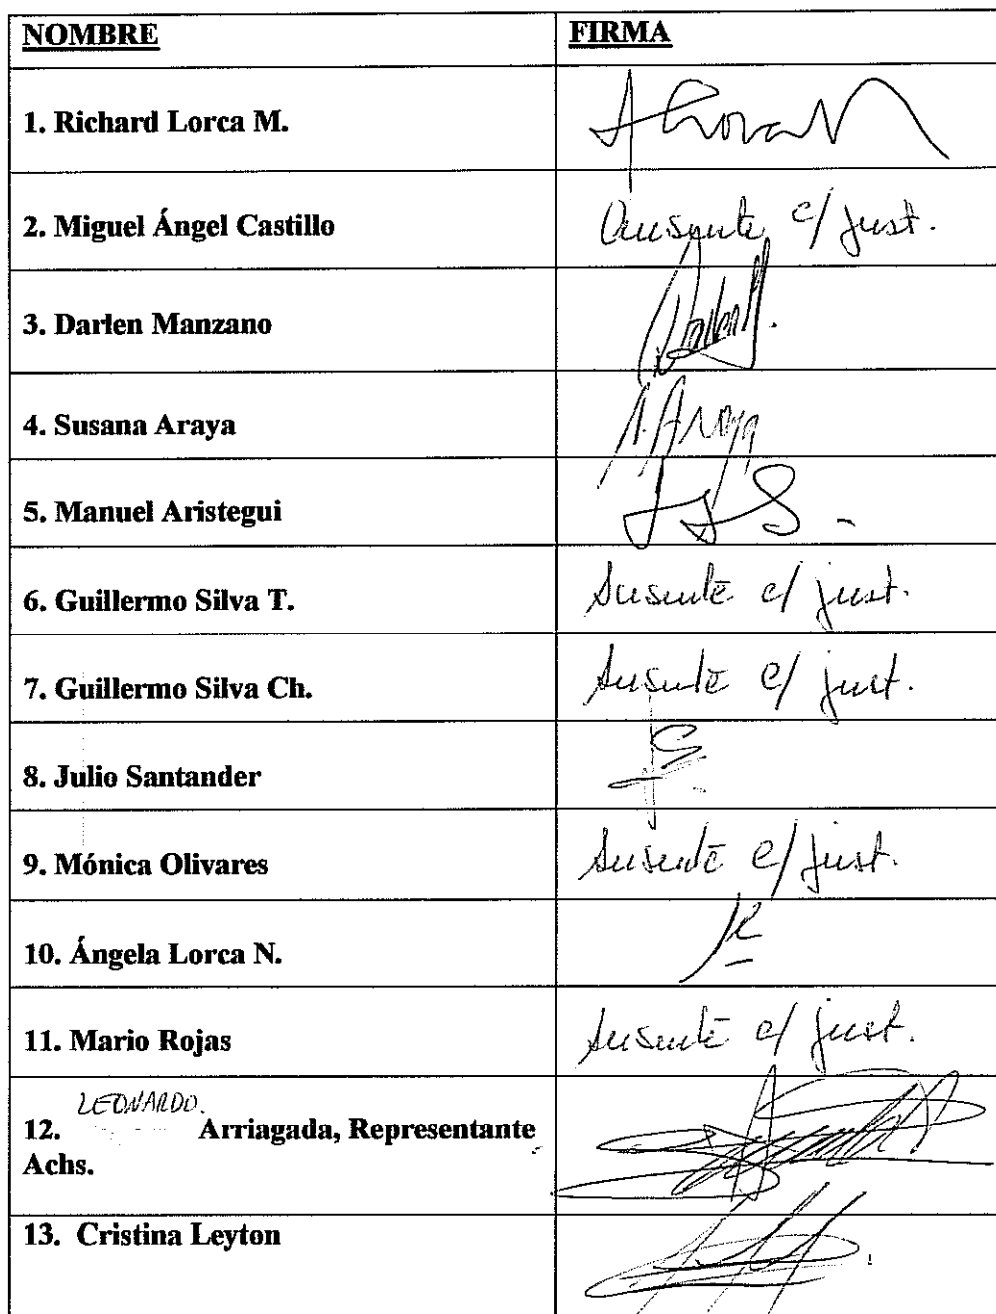 NOMBRE FIRMA
1. Richard Lorca M.
2. Miguel Ángel Castillo Ausente c/ just.
3. Darlen Manzano
4. Susana Araya
5. Manuel Aristegui
6. Guillermo Silva T. Ausente c/ just.
7. Guillermo Silva Ch. Ausente c/ just.
8. Julio Santander
9. Mónica Olivares Ausente c/ just.
10. Ángela Lorca N.
11. Mario Rojas Ausente c/ just.
LEONARDO.
12. Arriagada, Representante
Achs.
13. Cristina Leyton